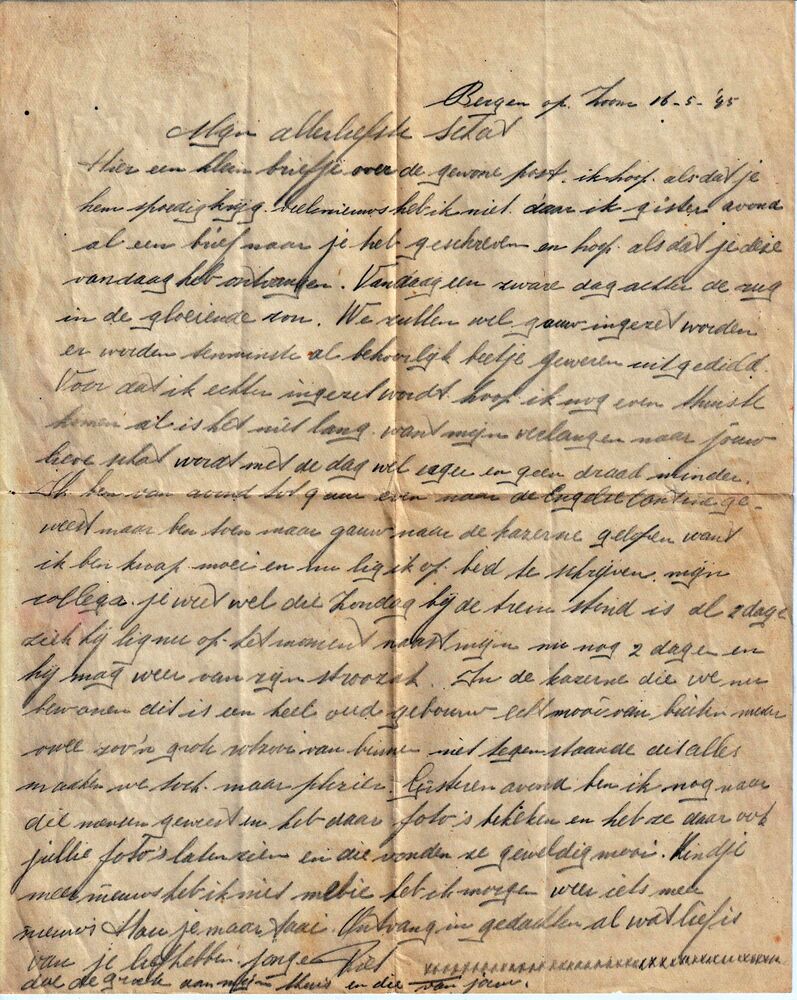 Bergen op Zoom 16-5-'45
Mijn allerliefste schat
Hier een klein briefje over de gewone post. ik hoop als dat je
hem spoedig krijg. veel nieuws heb ik niet daar ik gister avond
al een brief naar je heb geschreven en hoop als dat je deze
vandaag heb ontvangen. Vandaag een zware dag achter de rug
in de gloeiende zon. We zullen wel gauw ingezet worden
er worden tenminste al behoorlijk beetje geweren uit gedeeld.
Voor dat ik echter ingezet wordt hoop ik nog even thuis te
komen al is het niet lang. want mijn verlangen naar jouw
lieve schat wordt met de dag wel erger en geen draad minder.
Ik ben van avond tot even naar de Engelse Cantine ge-
weest maar ben toen maar gauw naar de kazerne gelopen want
ik ben knap moei en nu lig ik op bed te schrijven. mijn
collega je weet wel die Zondag bij de trein stond is al 2 dage
ziek hij lig nu op het moment naast mijn nu nog 2 dagen en
hij mag weer van zijn strozak. In de kazerne die we nu
bewonen dit is een heel oud gebouw echt mooi van buiten maar
owee zoo'n grote rotzooi van binne niet tegenstaande dit alles
maken we toch maar plezier. Gisteren avond ben ik nog naar
die mensen geweest en heb daar foto's bekeken en heb ze daar ook
jullie foto's laten zien en die vonden ze geweldig mooi. Kindje
meer nieuws heb ik niet mebie heb ik morgen weer iets meer
nieuws Hou je maar taai. Ontvang in gedachten al wat lief is
van je liefhebben jonge Piet xxxxxxxxxxxxxxxxxxxxxxxxxxxxxx
doe de groete aan mijn thuis en die van jouw.